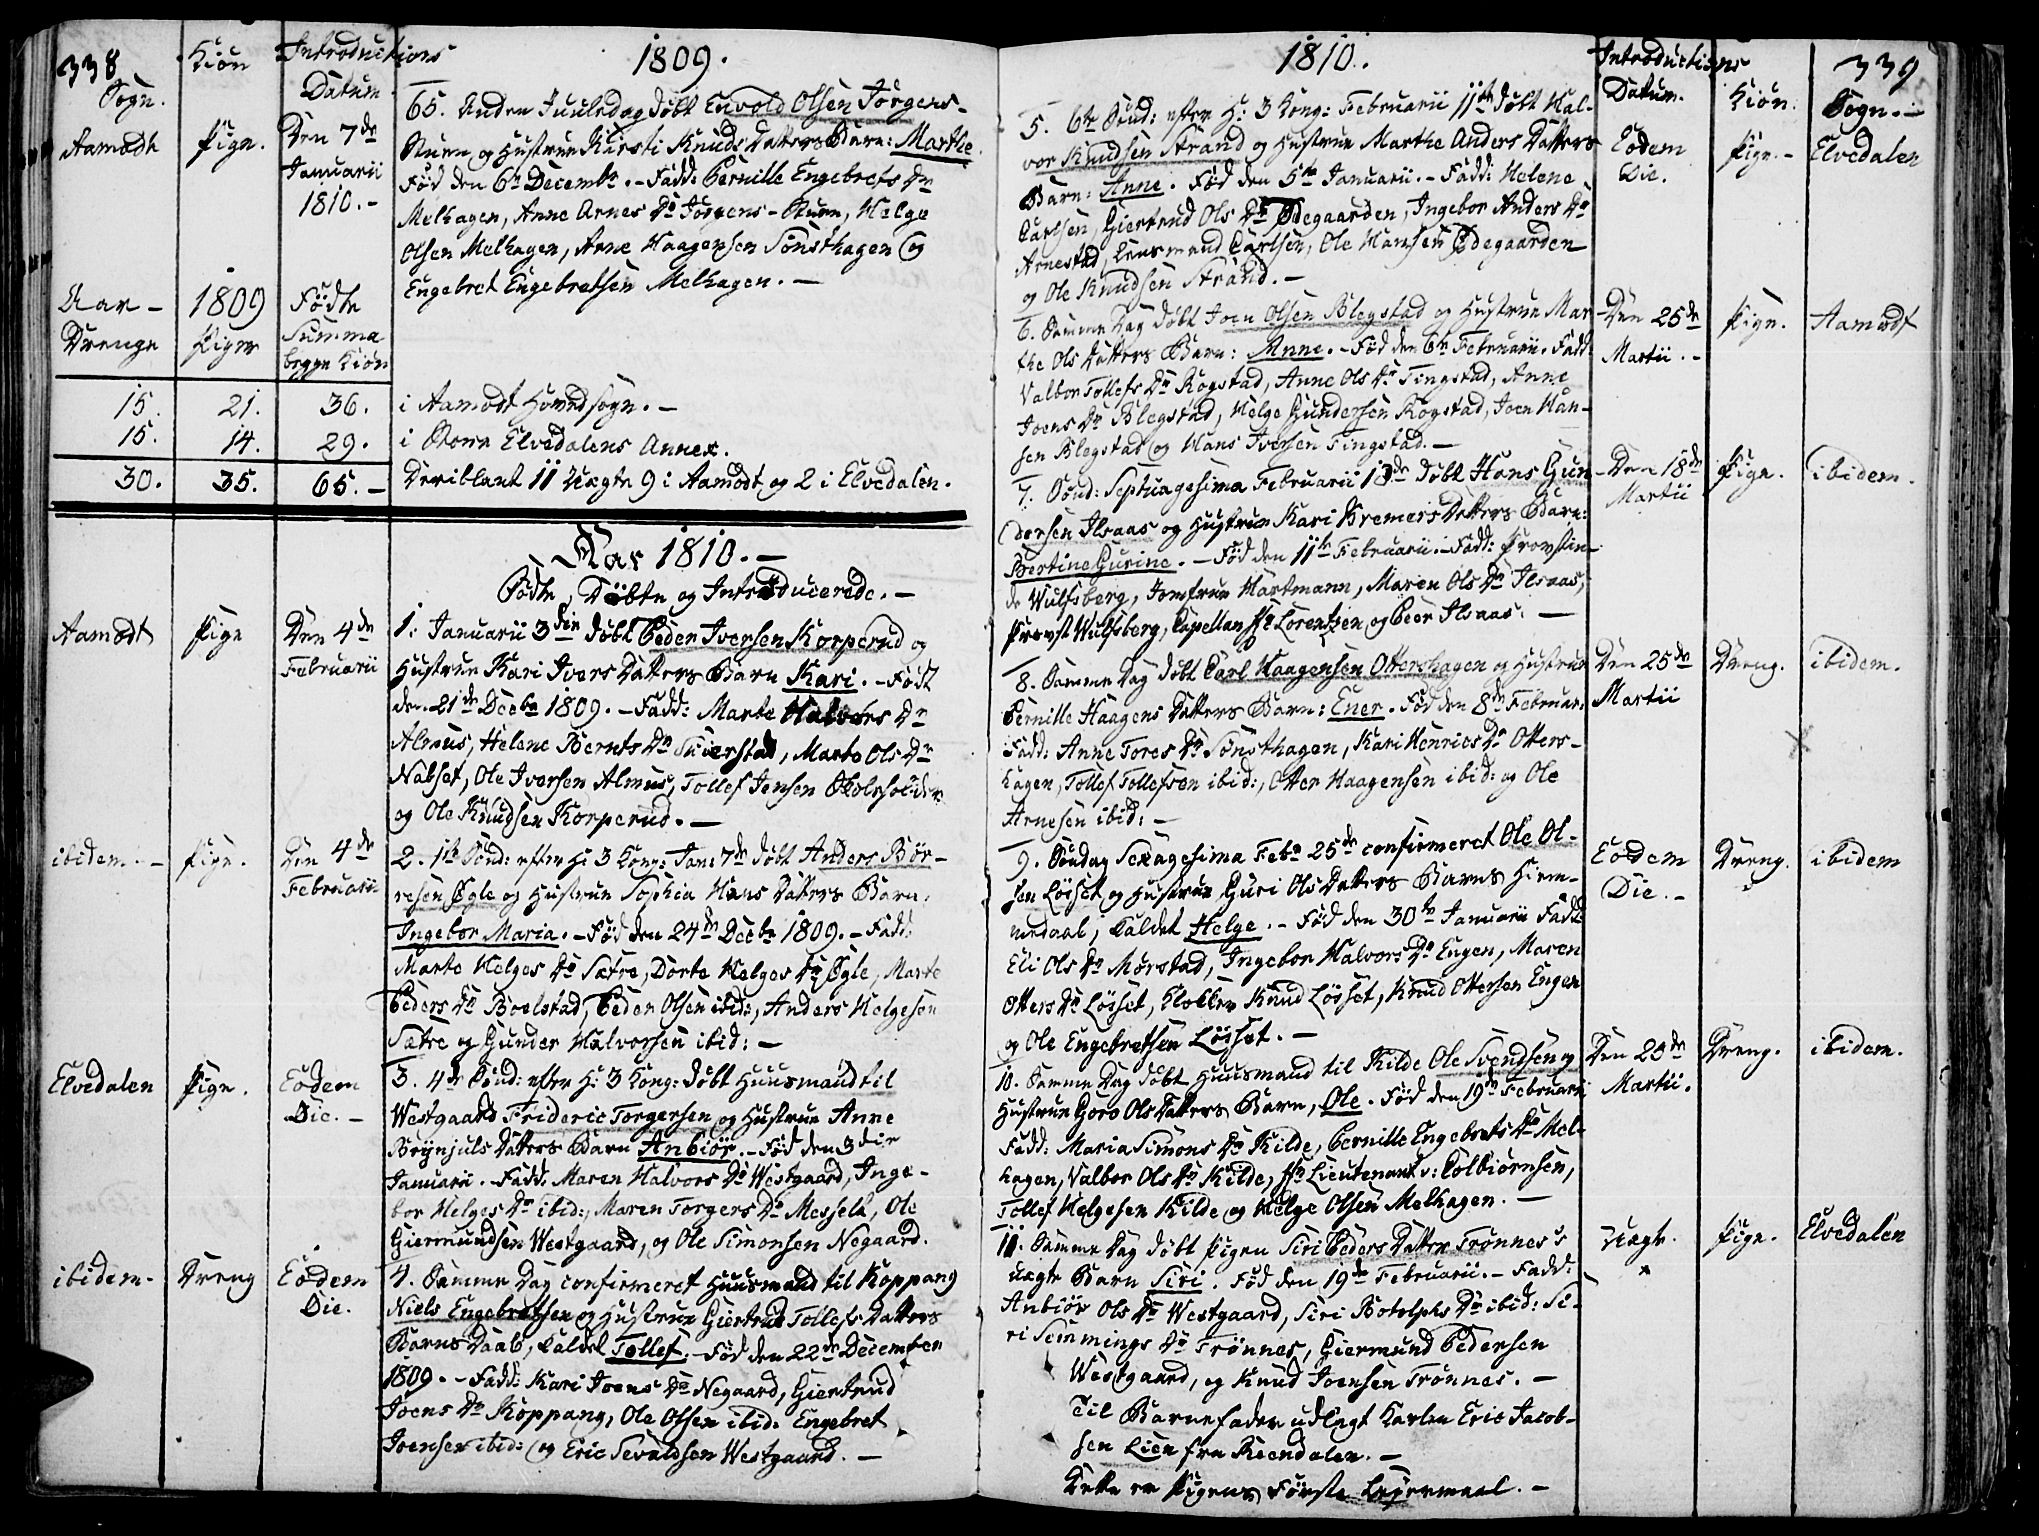 338
Sogn.
Kiön
Introductions
Datum.
1809.
Aamodt
Pige.
Den 7de
Januarii
1810.-
65. Anden Juuledag döbt Envold Olsen Jörgens-
Stuen og Hustrue Kirsti Knuds Datters Barn: Marthe.
Fød den 6te Decembr. - Fadd: Pernille Engebrets Dr
Melhagen, Anne Arnes Dr Jörgens-Stuen, Helge
Olsen Melhagen, Arne Haagensen Sönsthagen og
Engebret Engebretsen Melhagen. -
Aar - 1809 Födte
Drenge Piger Summa
begge Kiön
15. 21. 36. i Aamodt Hovedsogn. -
15. 14. 29. i Store Elvedalens Annex.
30. 35. 65. - Deriblant 11 Uægte 9 i Aamodt og 2 i Elvedalen.
Aar 1810. -
Födte, Döbte og Introducerede. -
Aamodt
Pige
Den 4de
Februarii
1. Januarii 3die döbt Peder Iversen Korperud og
Hustrue Kari Ivers Datters Barn Kari. - Födt
den 21de Decbr 1809. - Fadd: Marte Halvors Dr
Almus, Helene Bernts Dr Skierstad, Marte Ols Dr
Nabset, Ole Iversen Almus, Tollef Jensen Skoleholder
og Ole Knudsen Korperud. -
ibidem. -
Pige.
Den 4de
Februarii
2. 1te Sönd: efter H: 3 Kong: Jan: 7de döbt Anders Bör-
resen Ögle og Hustrue Sophia Hans Datters Barn,
Ingebor Maria. - Fød den 24de Decbr 1809. - Fadd:
Marte Helges Dr Sætre, Dorte Helges Dr Ögle, Marte
Peders Dr Boelstad, Peder Olsen ibid:, Anders Helgesen
Sætre og Gunder Halvorsen ibid: -
Elvedalen
Pige.
Eodem
Die. -
3. 4de Sönd: efter H: 3 Kong: döbt Huusmand til
Westgaard Frideric Torgersen og Hustrue Anne
Brynjuls Datters Barn Anbiör. - Fød den 3die
Januarii. - Fadd: Maren Halvors Dr Westgaard, Inge-
bor Helges Dr ibid:, Maren Torgers Dr Messelt, Ole
Giermundsen Westgaard, og Ole Simonsen Negaard.
ibidem.
Dreng
Eodem
Die.
4. Samme Dag confirmeret Huusmand til Koppang
Niels Engebretsen og Hustrue Giertrud Tollefs Datters
Barns Daab, kaldet Tollef. - Fød den 22de December
1809. - Fadd: Kari Joens Dr Negaard, Giertrud
Joens Dr Koppang, Ole Olsen ibid: Engebret
Joensen ibid: og Eric Sevaldsen Westgaard. -
1810.
Introductions
Datum.
Kiön.
339
Sogn. -
5. 6te Sönd: efter H: 3 Kong: Februarii 11te döbt Hal-
vor Knudsen Strand og Hustrue Marthe Anders Datters
Barn: Anne. Fød den 5te Januarii. - Fadd: Helene
Carlsen, Giertrud Ols Dr Ödegaarden, Ingebor Anders Dr
Arnestad, Lensmand Carlsen, Ole Hansen Ödegaarden
og Ole Knudsen Strand. -
Eodem
Die.
Pige. -
Elvedalen
6. Samme Dag döbt Joen Olsen Blegstad og Hustrue Mar-
the Ols Datters Barn: Anne. - Fød den 6te Februarii. Fadd:
Valbor Tollefs Dr Rogstad, Anne Ols Dr Tingstad, Anne
Joens Dr Blegstad, Helge Gundersen Rogstad, Joen Han-
sen Blegstad og Hans Iversen Tingstad. -
Den 25de
Martii. -
Pige.
Aamodt
7. Sönd: Septuagesima Februarii 18de döbt Hans Gun-
dersen Ilsaas og Hustrue Kari Kremers Datters Barn:
Bertine Gurine. - Fød den 11te Februarii. - Fadd: Provstin-
de Wulfsberg, Jomfrue Hartmann, Maren Ols Dr Ilsaas,
Provst Wulfsberg, Capellan Hr Lorentzen og Peer Ilsaas. -
Den 18de
Martii
Pige.
ibidem.
8. Samme Dag döbt Carl Haagensen Ottershagen og Hustrue
Pernille Haagens Datters Barn: Ener. Fød den 8de Februar:
Fadd: Anne Tores Dr Sönsthagen, Kari Henrics Dr Otters-
hagen, Tollef Tollefsen ibid:, Otter Haagensen ibid: og Ole
Arnesen ibid: -
Den 25de
Martii
Dreng.
ibidem.
9. Söndag Sexagesima Febr 25de confirmeret Ole Ol-
sen Löset og Hustrue Guri Ols Datters Barns Hiem-
medaab, kaldet Helge. - Fød den 30te Januarii Fadd:
Eli Ols Dr Mørstad, Ingebor Halvors Dr Engen, Maren
Otters Dr Löset, Klokker Knud Löset, Knud Ottersen Engen
og Ole Engebretsen Löset. -
Eodem
Die. -
Dreng.
ibidem
10. Samme Dag döbt Huusmand til Kilde Ole Svendsen og
Hustrue Goro Ols Datters Barn, Ole. Fød den 19de Februarii
Fadd: Maria Simons Dr Kilde, Pernille Engebrets Dr Mel-
hagen, Valbor Ols Dr Kilde, Hr Lieutenant v: Colbiörnsen,
Tollef Helgesen Kilde og Helge Olsen Melhagen. -
Den 25de
Martii.
Dreng.
ibidem.
11. Samme Dag döbt Pigen Siri Peders Datter Trönnes's
uægte Barn Siri. Fød den 19de Februarii. - Fadd:
Anbiör Ols Dr Westgaard, Siri Botolphs Dr ibid: Si-
ri Semmings Dr Trönnes, Giermund Pedersen
Westgaard, og Knud Joensen Trönnes. -
Til Barnefader udlagt Karlen Eric Jacob-
sen Lien fra Reendalen. -
Dette er Pigens Første Leyermaal. -
Uægte.
Pige.
Elvedalen